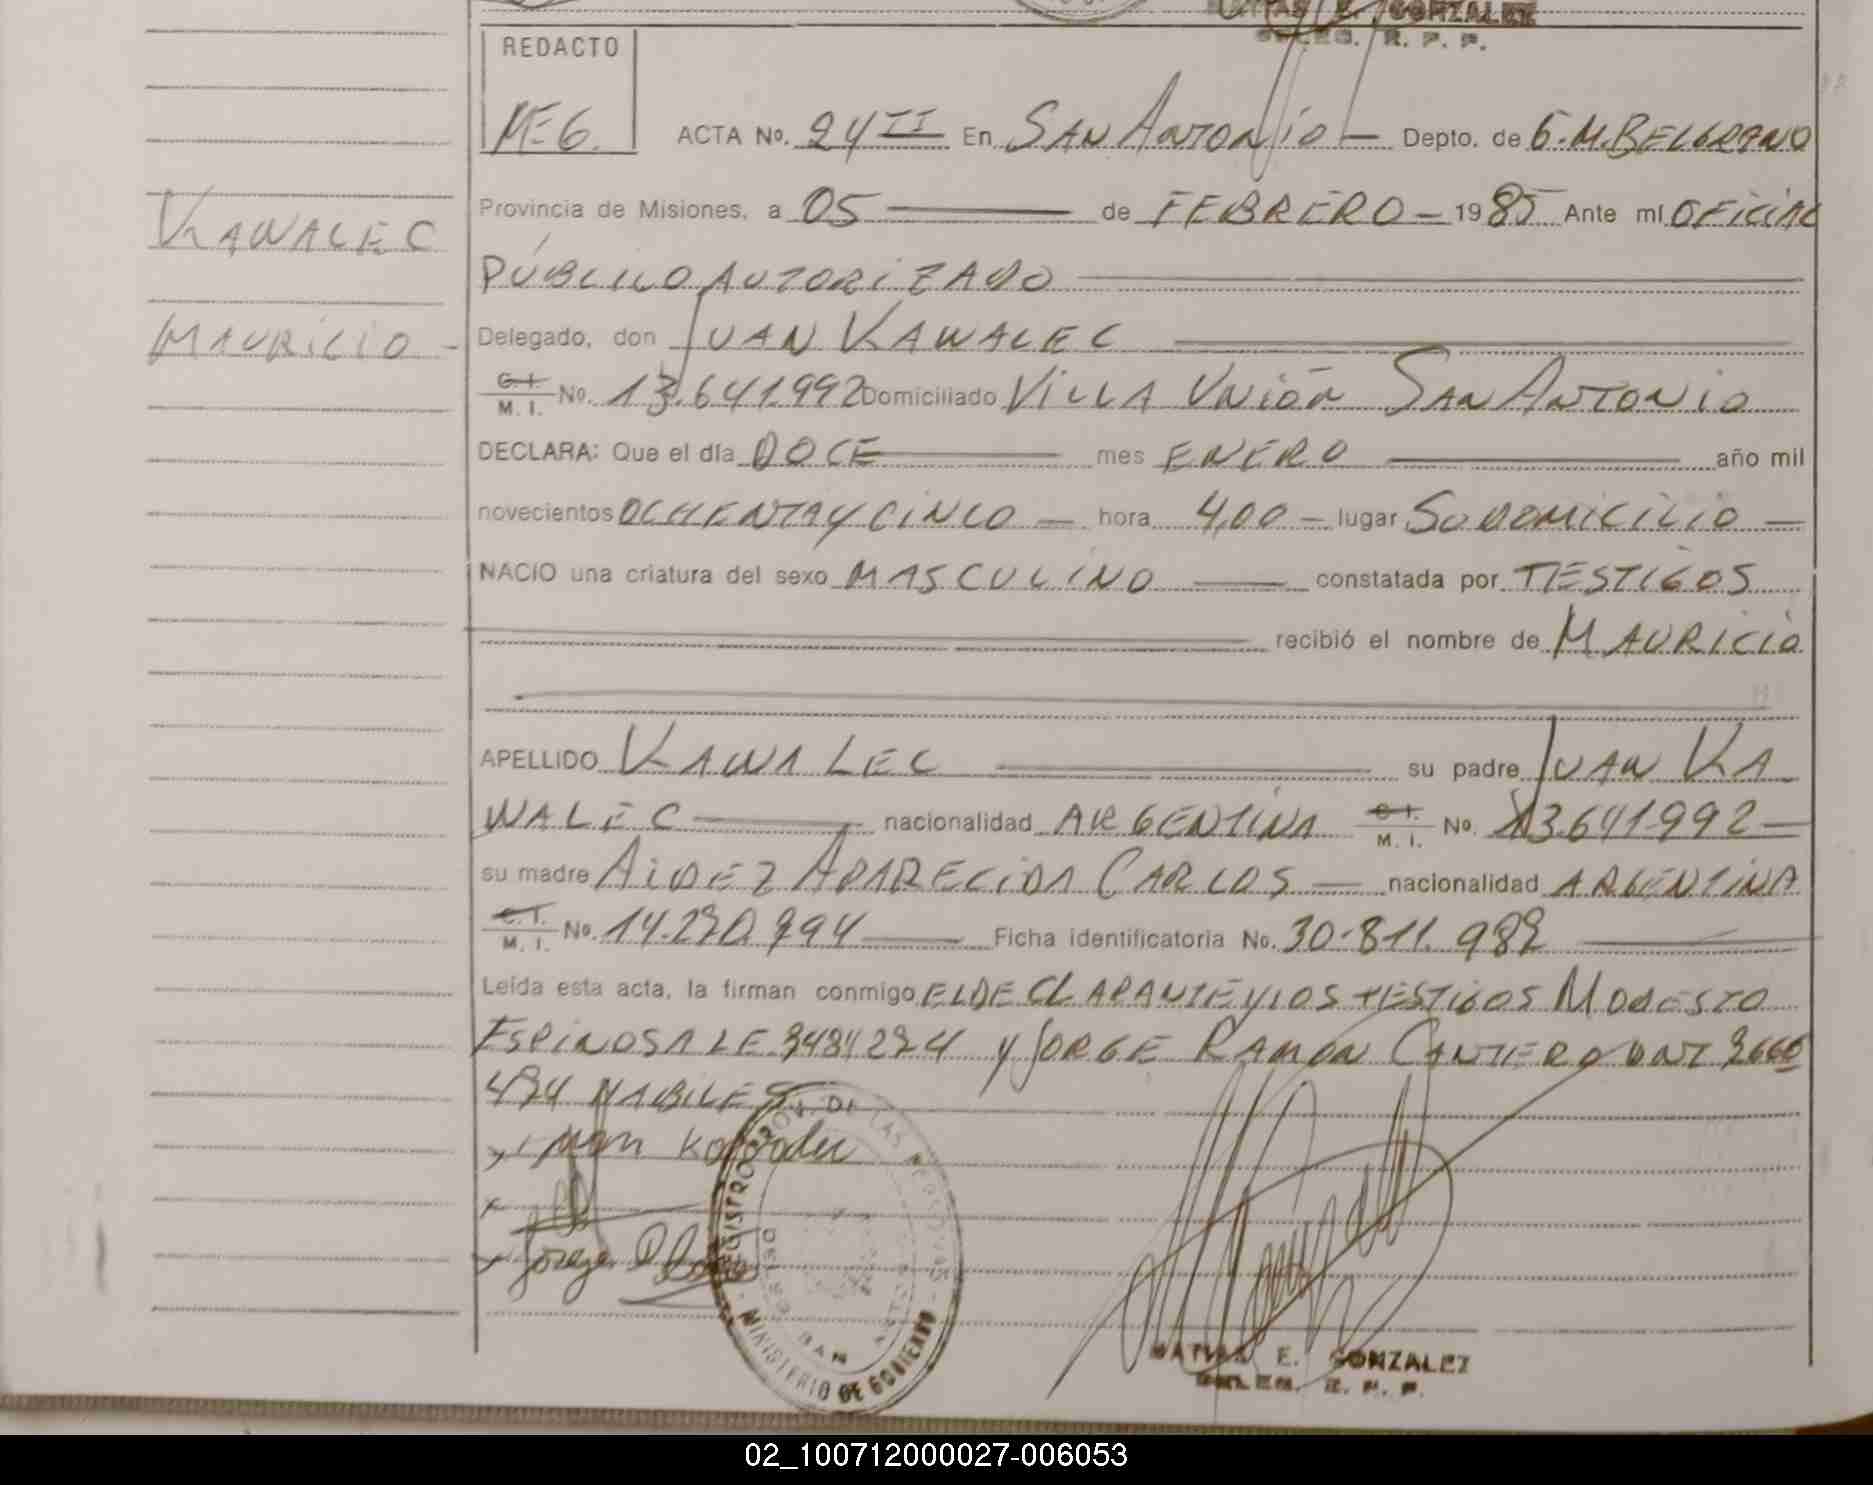 E. GONZALEZ
R. P. P.
REDACTO
M.E.G.
ACTA No. 24 II En SAN ANTONIO — Depto. de G.M. BELGRANO
Provincia de Misiones, a 05 — de FEBRERO — 1985 Ante mí OFICIAL
PÚBLICO AUTORIZADO
KAWALEC
MAURICIO -
Delegado, don JUAN KAWALEC
C.I. M. I. No. 13.641.992 Domiciliado VILLA UNIÓN SAN ANTONIO
DECLARA: Que el día DOCE — mes ENERO — año mil
novecientos OCHENTA Y CINCO — hora 4,00 — lugar SU DOMICILIO —
NACIO una criatura del sexo MASCULINO — constatada por TESTIGOS
recibió el nombre de MAURICIO
APELLIDO KAWALEC — su padre JUAN KA
WALEC — nacionalidad ARGENTINA C.I. M. I. No. 13.641.992 —
su madre AIDEZ APARECIDA CARLOS — nacionalidad ARGENTINA
C.I. M. I. No. — Ficha identificatoria No. 30.811.982 —
Leída esta acta, la firman conmigo EL DECLARANTE Y LOS TESTIGOS MODESTO
ESPINOSA LE Y JORGE RAMÓN CANTERO DNI
HABILES
REGISTRO PROV. DE LAS PERSONAS
MINISTERIO DE GOBIERNO
SAN
MATIAS E. GONZALEZ
R. P. P.
02_100712000027-006053